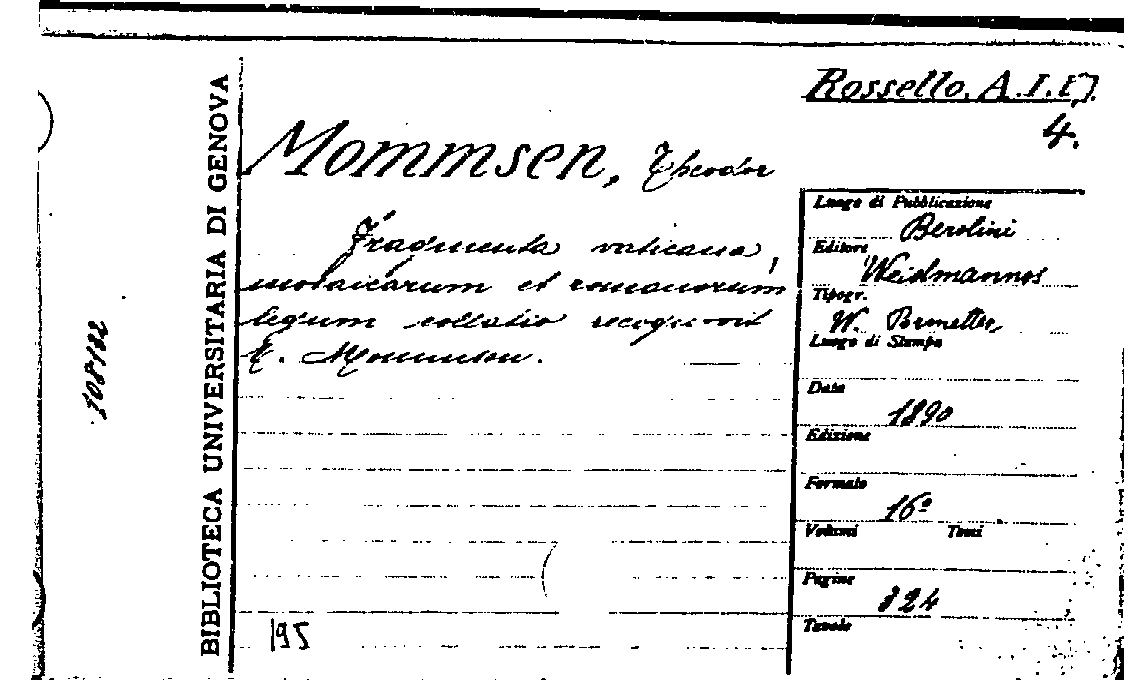 Rossello. A.I.E.
4.
BIBLIOTECA UNIVERSITARIA DI GENOVA
108132
Mommsen, Theodor
Fragmenta vaticana,
mosaicarum et romanorum
legum collatio recognovit
T. Mommsen.
Luogo di Pubblicazione
Berolini
Editore
Weidmannos
Tipogr.
W.
Luogo di Stampa
Data
1890
Edizione
Formato
16º
Volumi Tomi
Pagine
324
Tavole
195